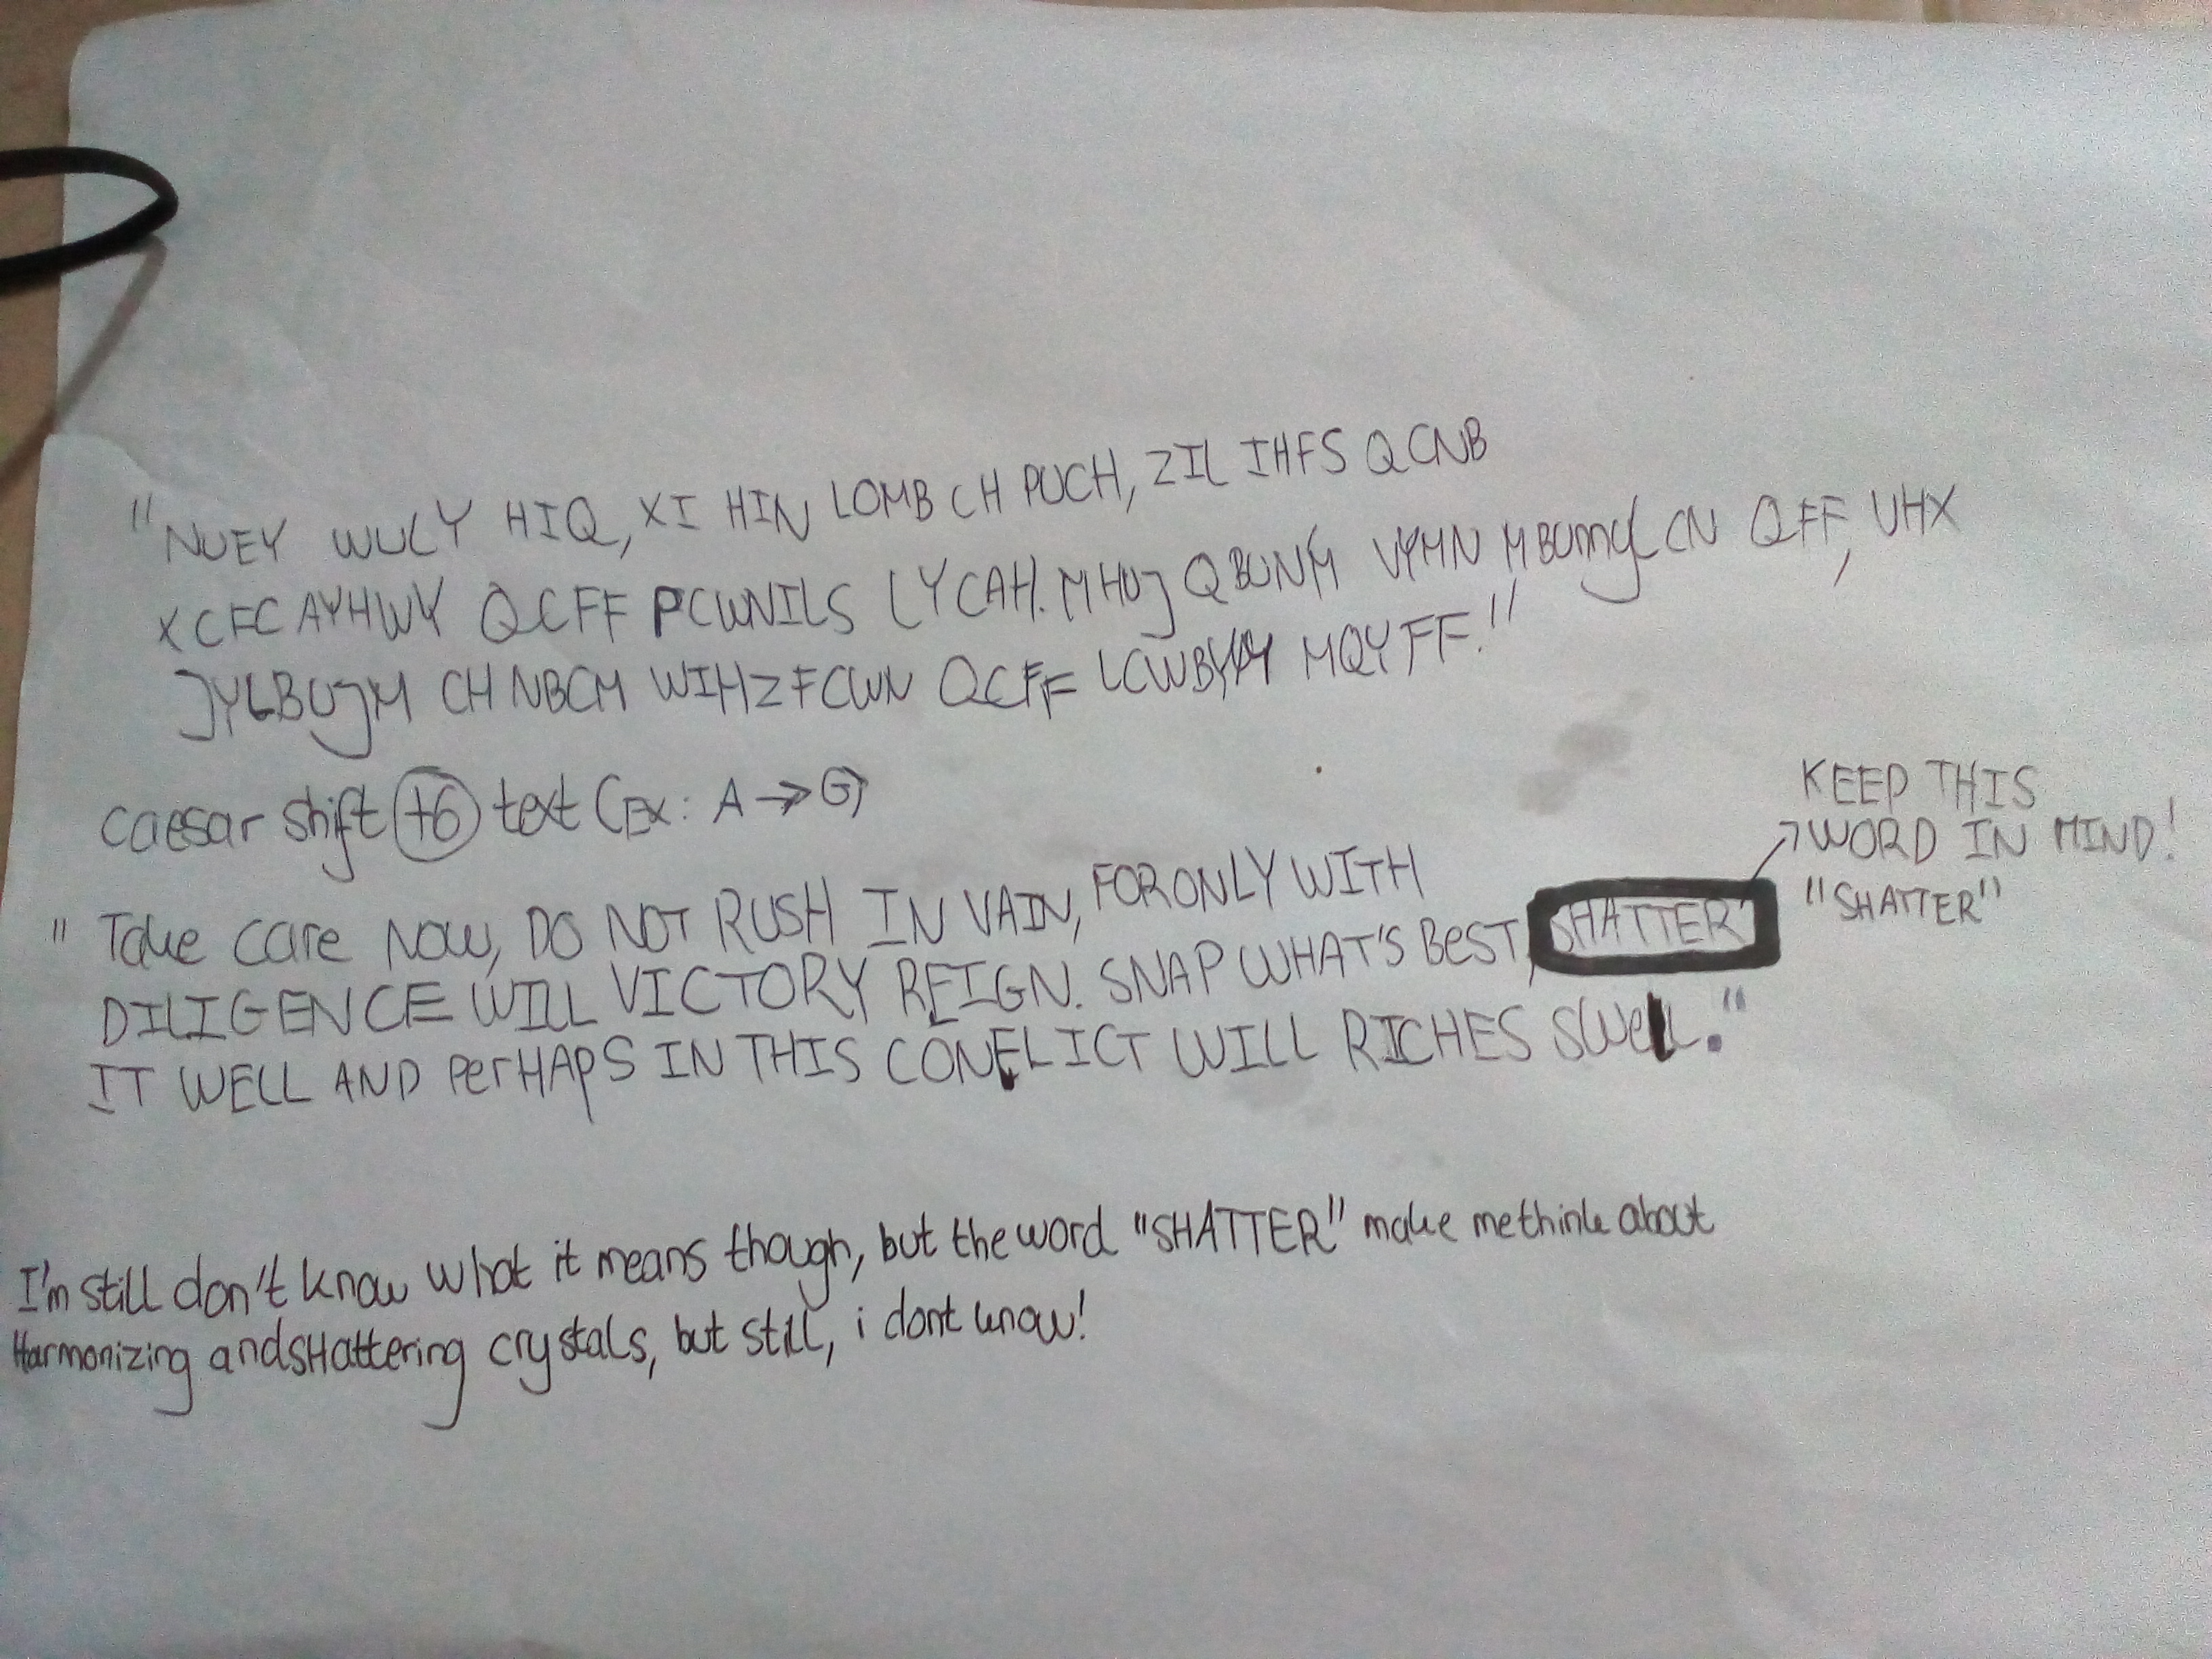 "NUEY WULY HIQ, XI HIN LOMB CH PUCH, ZIL IHFS QCNB
XCFCAYHWY QCFF PCWNILS LYCAH. MHUJ QBUNM VYMN MBUnnyL CN QFF, UHX
JYLBUJM CH NBCM WIHZFCWN QCFF LCWBYM MQYFF."
caesar shift +6 text (Ex: A → G)
KEEP THIS
WORD IN MIND!
"SHATTER"
"Take care NOW, DO NOT RUSH IN VAIN, FOR ONLY WITH
DILIGENCE WILL VICTORY REIGN. SNAP WHAT'S BEST, SHATTER
IT WELL AND PerHAPS IN THIS CONFLICT WILL RICHES SWELL."
I'm still don't know what it means though, but the word "SHATTER" make me think about
Harmonizing and SHattering crystals, but still, i dont know!